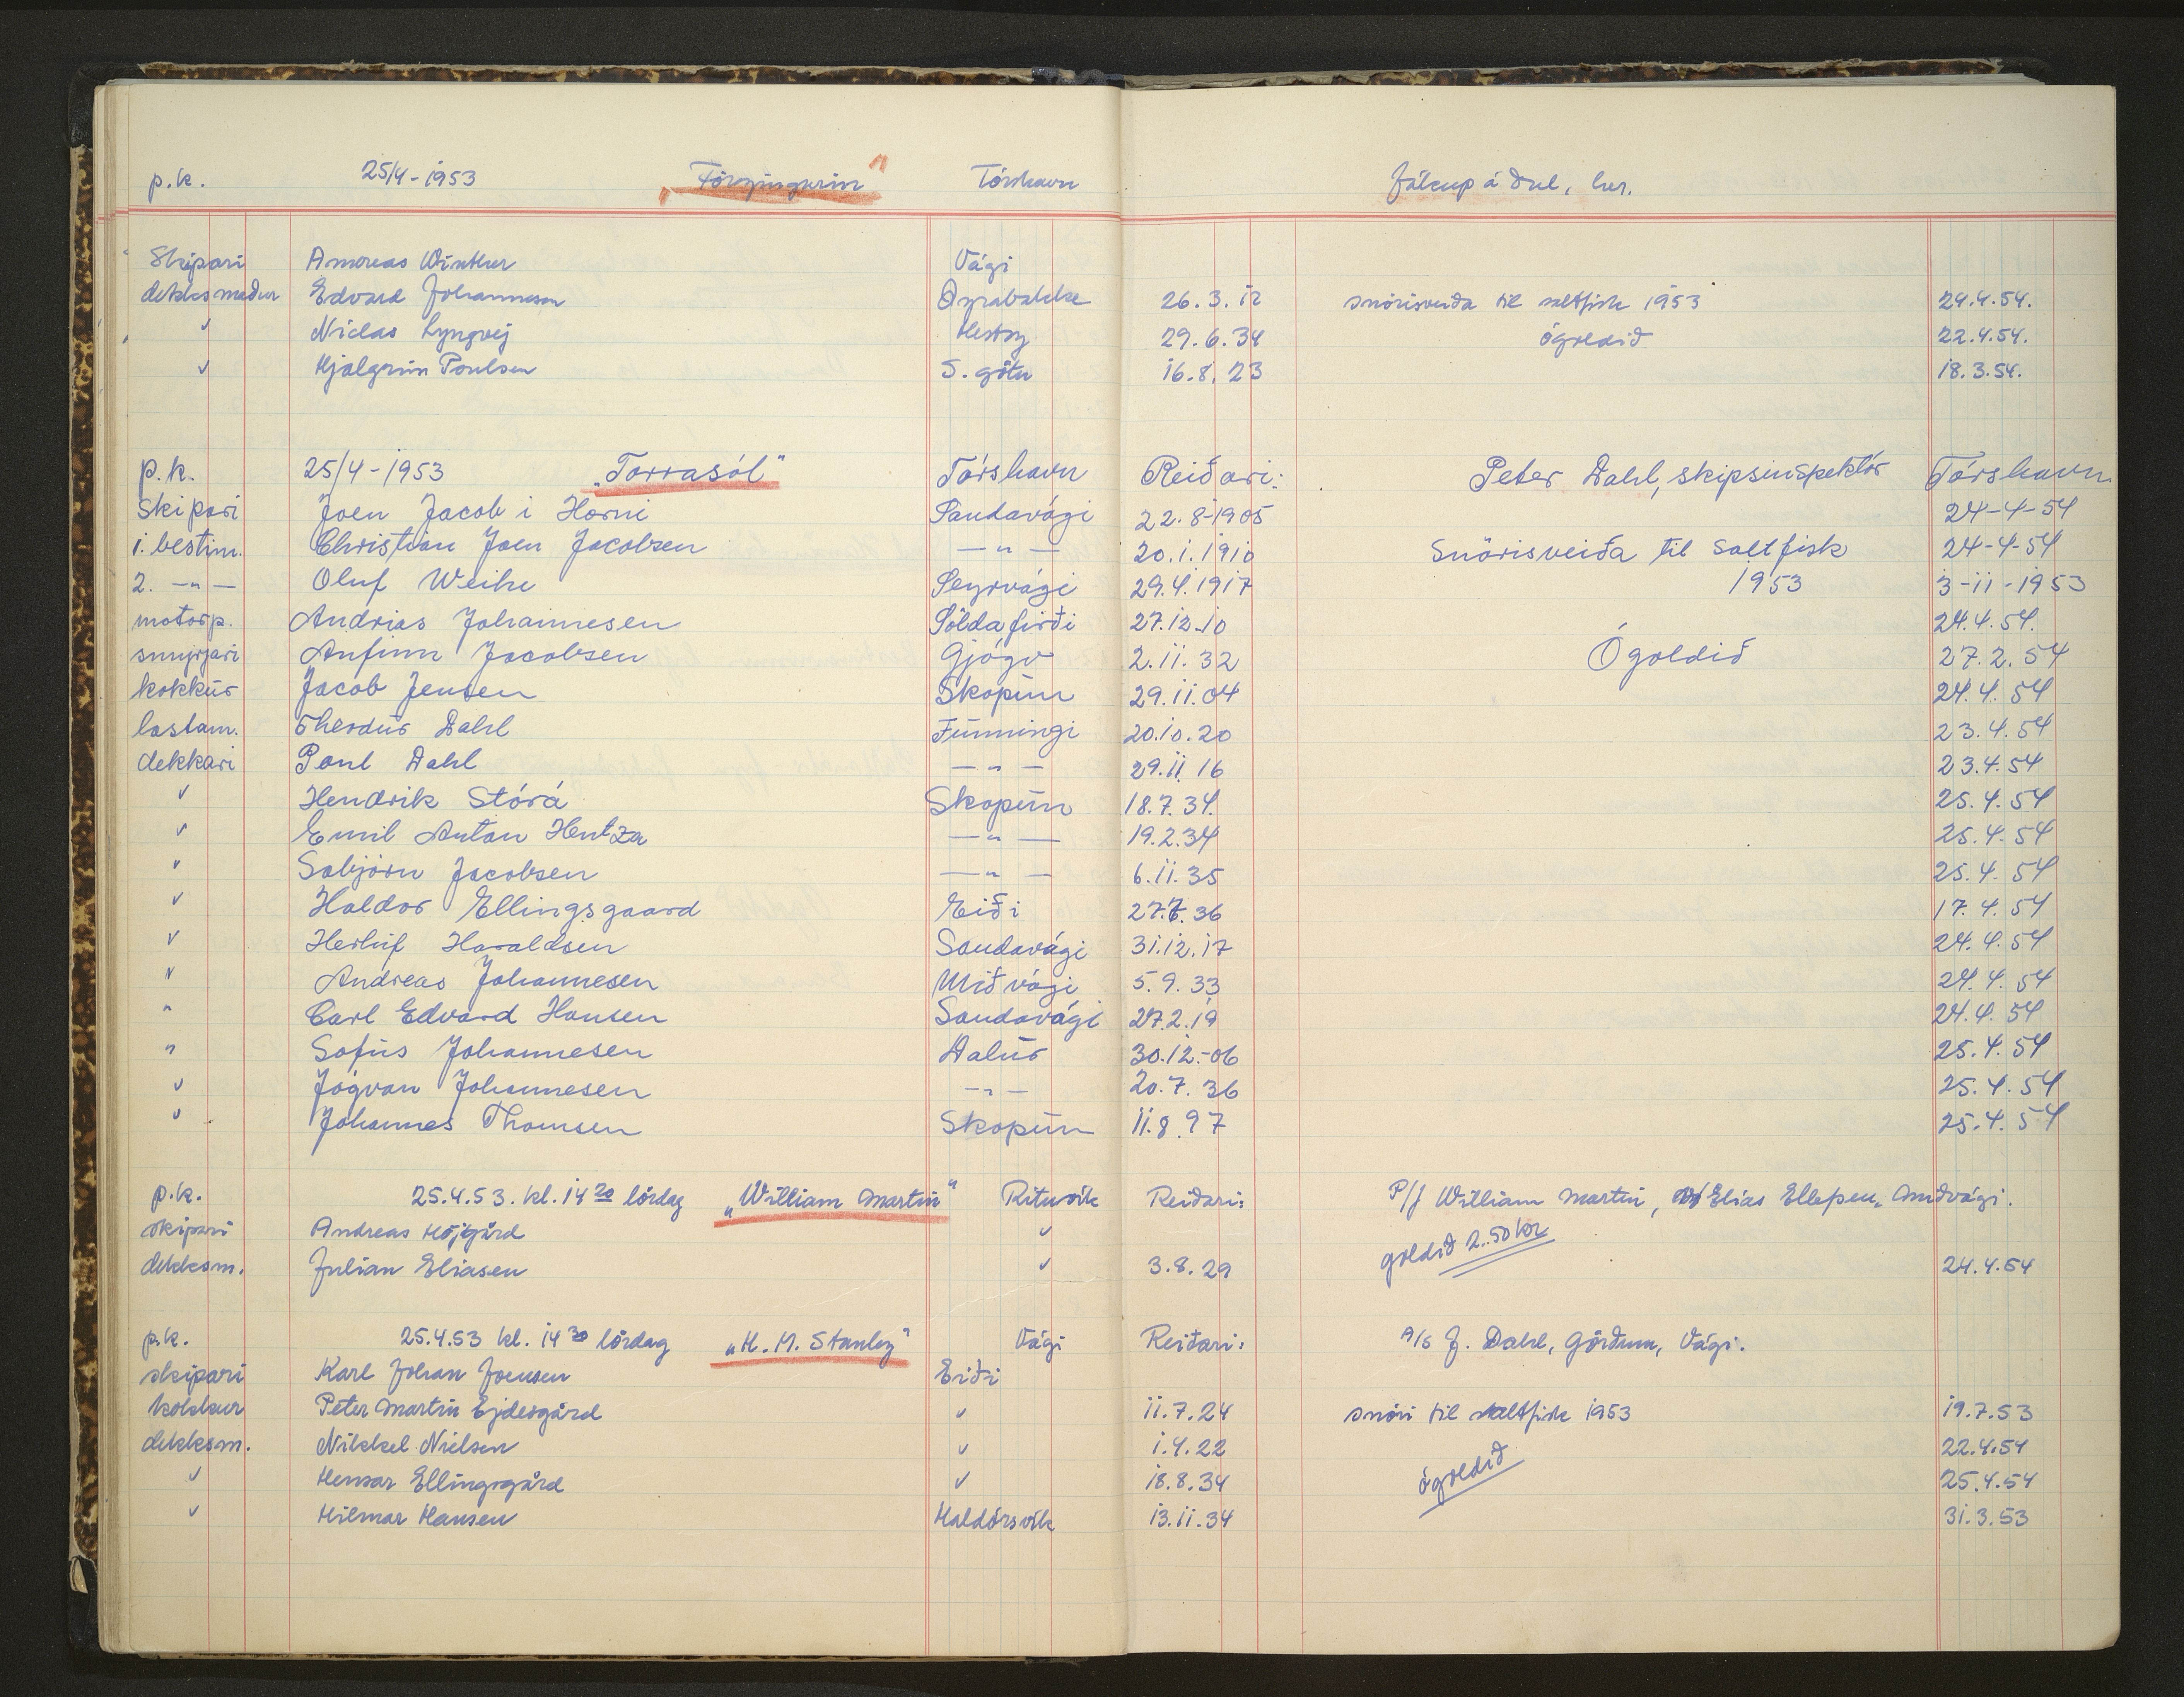 p.k. 25/4-1953 „Föroyingurin" Tórshavn Jákup á Dul, her.
Skipari Andreas Winther Vági
dekksmaður Edvard Johannesen Oyrabakke 26.3.12 snörisveiða til saltfisk 1953 24.4.54.
✓ Niclas Lyngvej Hestoy 29.6.34 ógoldið 22.4.54.
✓ Hjalgrim Poulsen S. götu 16.8.23 18.3.54.
p.k. 25/4-1953 „Tarrasól" Tórshavn Reiðari: Peter Dahl, skipsinspektör Tórshavn
Skipari Joen Jacob i Horni Sandavági 22.8-1905 24-4-54
1. bestim. Christian Joen Jacobsen —"— 20.1.1910 Snörisveiða til Saltfisk 24-4-54
2. —"— Oluf Weihe Seyrvági 29.4.1917 1953 3-11-1953
motorp. Andrias Johannesen Söldafirði 27.12.10 24.4.54.
smyrjari Anfinn Jacobsen Gjógv 2.11.32 Ógoldið 27.2.54
kokkur Jacob Jensen Skopun 29.11.04 24.4.54
lastam. Theodur Dahl Funningi 20.10.20 23.4.54
dekkari Poul Dahl —"— 29.11.16 23.4.54
✓ Hendrik Stórá Skopun 18.7.34. 25.4.54
✓ Emil Anton Hentza —"— 19.2.34 25.4.54
" Sabjörn Jacobsen —"— 6.11.35 25.4.54
✓ Haldor Ellingsgaard Eiði 27.7.36 17.4.54
✓ Herluf Haraldsen Sandavági 31.12.17 24.4.54
" Andreas Johannesen Miðvági 5.9.33 24.4.54
" Carl Edvard Hansen Sandavági 27.2.19 24.4.54
" Sofus Johannesen Dalur 30.12.-06 25.4.54
✓ Jógvan Johannesen —"— 20.7.36 25.4.54
✓ Johannes Thomsen Skopun 11.8.97 25.4.54
p.k. 25.4.53. kl. 14 20 lördag „William Martin" Rituvik Reiðari: P/f William Martin, Elias Ellefsen, Miðvági.
skipari Andreas Höjgård ✓ goldið 2.50 kr
dekksm. Julian Eliasen ✓ 3.8.29 24.4.54
p.k. 25.4.53 kl. 14 30 lördag „H. M. Stanley" Vági Reiðari: A/S J. Dahl, Görðum, Vági.
skipari Karl Johan Joensen Eiði
kokkur Peter Martin Ejdesgård ✓ 11.7.24 snöri til saltfisk 1953 19.7.53
dekksm. Nikkel Nielsen ✓ 1.4.22 22.4.54
✓ Hensar Ellingsgård ✓ 18.8.34 ógoldið 25.4.54
✓ Hilmar Hansen Haldórsvik 13.11.34 31.3.53